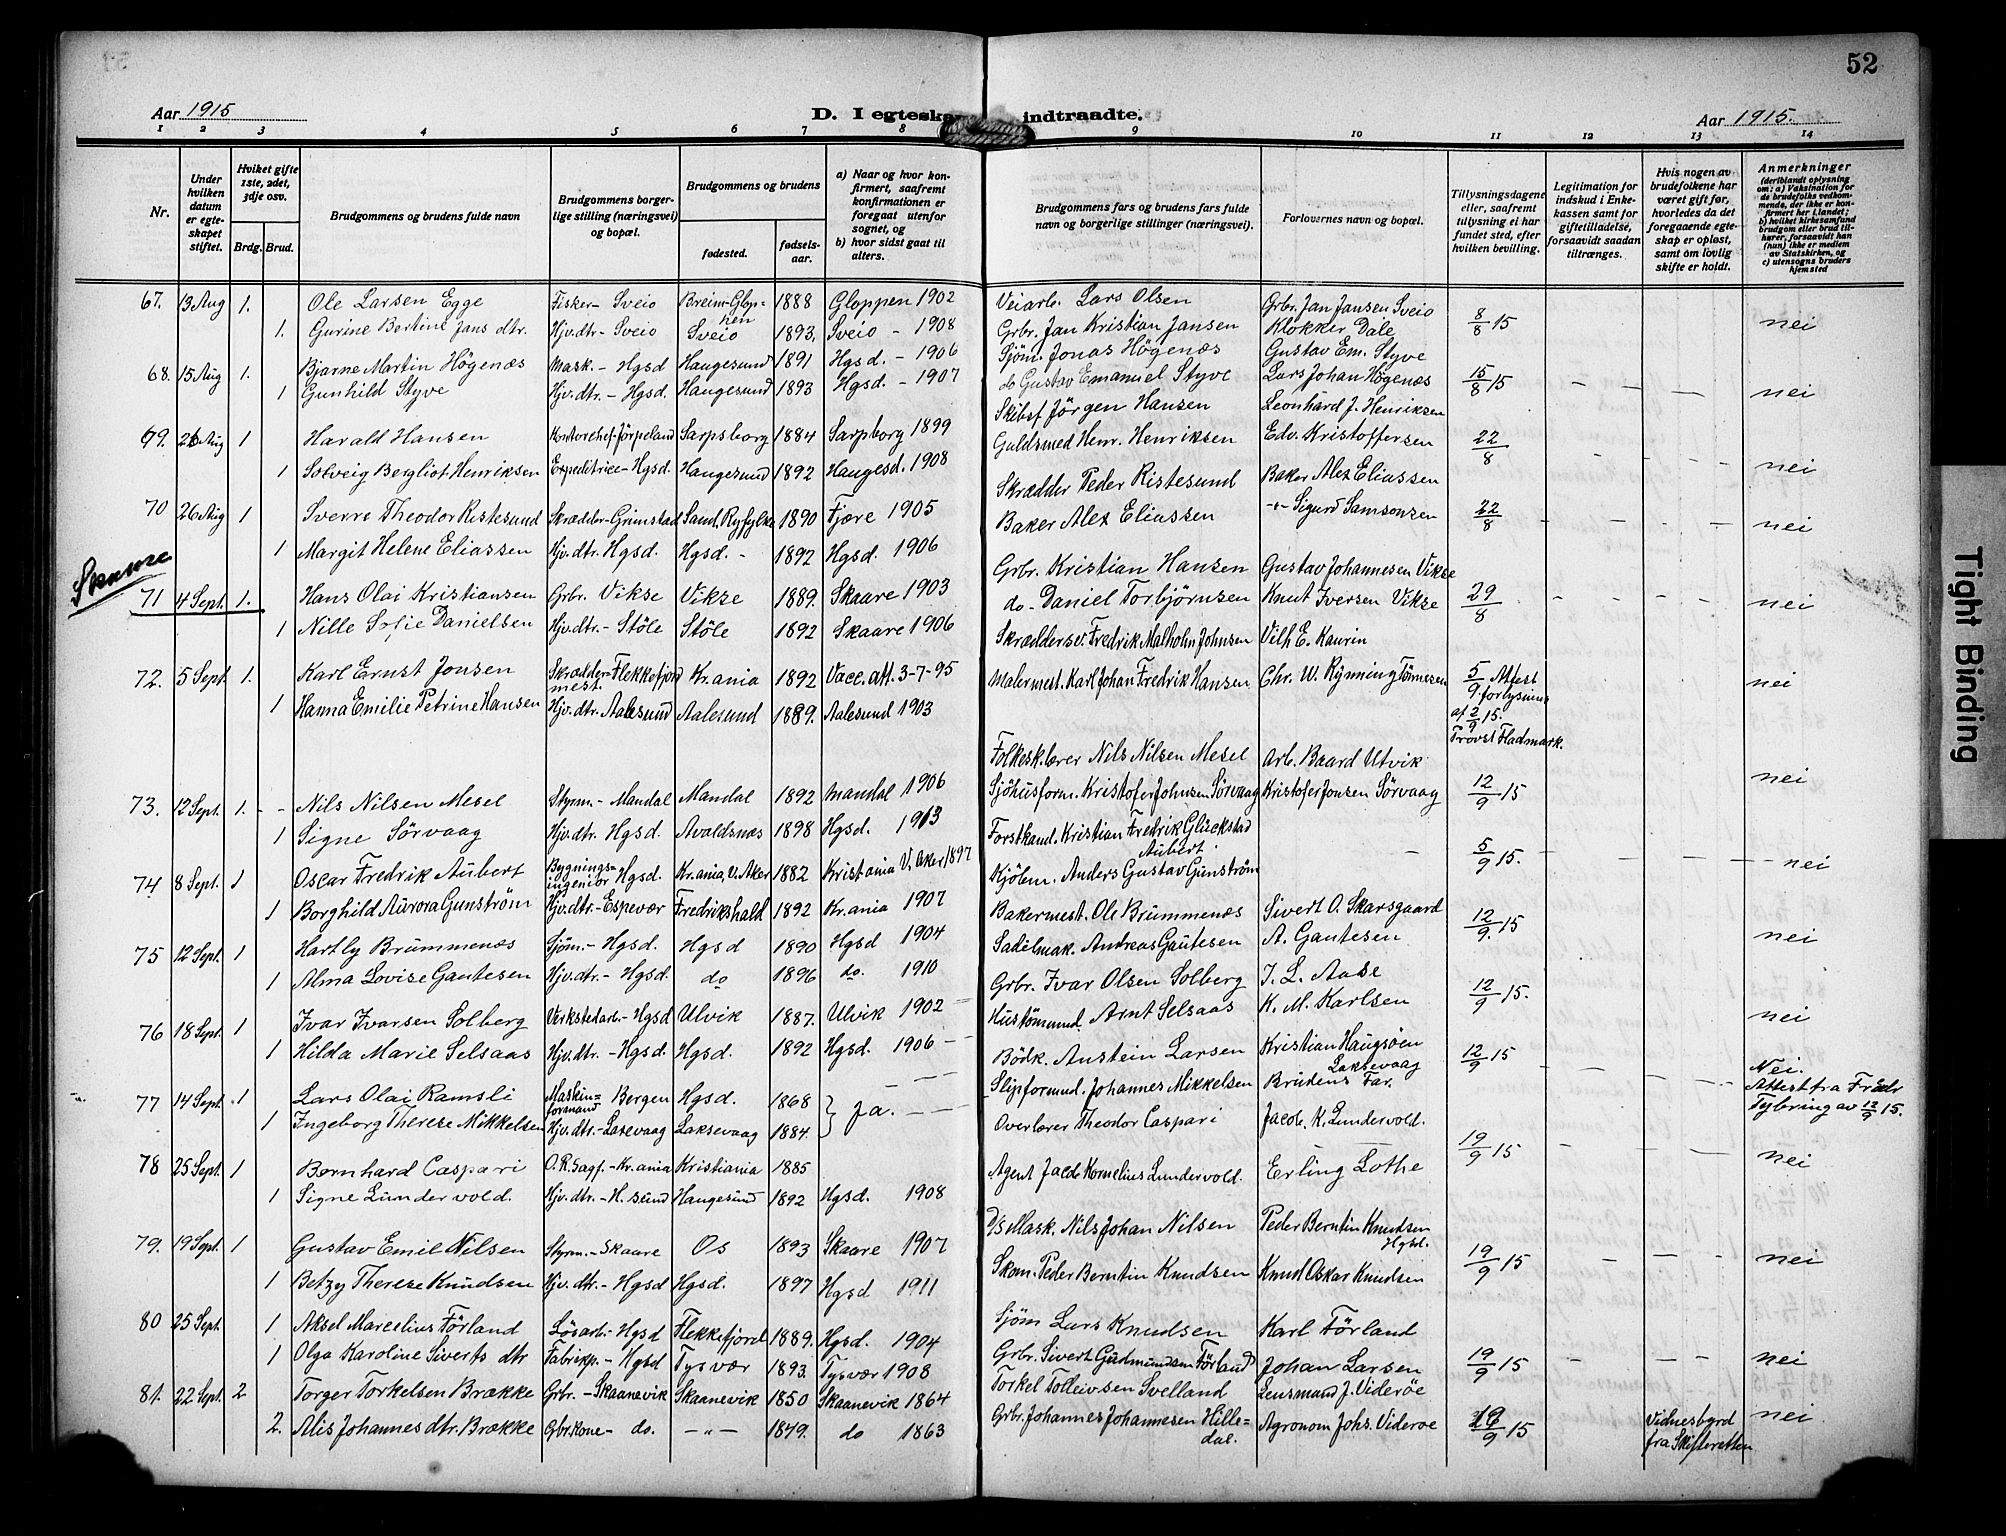 52
Aar 1915
D. I egteska
indtraadte.
Aar 1915.
1 2 3 4 5 6 7 8 9 10 11 12 13 14
Nr.
Under hvilken datum er egteskapet stiftet.
Hvilket gifte 1ste, 2det, 3dje osv.
Brdg. Brud.
Brudgommens og brudens fulde navn
Brudgommens borgerlige stilling (næringsvei) og bopæl.
Brudgommens og brudens
fødested.
fødselsaar.
a) Naar og hvor konfirmert, saafremt konfirmationen er foregaat utenfor sognet, og
b) hvor sidst gaat til alters.
Brudgommens fars og brudens fars fulde navn og borgerlige stillinger (næringsvei).
Forlovernes navn og bopæl.
Tillysningsdagene eller, saafremt tillysning ei har fundet sted, efter hvilken bevilling.
Legitimation for indskud i Enkekassen samt for giftetilladelse, forsaavidt saadan tiltrænges.
Hvis nogen av brudefolkene har været gift før, hvorledes da det foregaaende egteskap er opløst, samt om lovlig skifte er holdt.
Anmerkninger
(deriblandt oplysning om: a) Vaksination for de brudefolks vedkommende, der ikke er konfirmert her i landet; b) hvilket kirkesamfund brudgom eller brud tilhører, forsaavidt han (hun) ikke er medlem av Statskirken, og c) utensogns bruders hjemsted
67. 13 Aug 1. Ole Larsen Egge Fisker - Sveio Breim-Glophen 1888 Gloppen 1902 Veiarb. Lars Olsen Grbr. Jan Jansen Sveio 8/8 15 nei
1. Gurine Bertine Jans dtr. Hjv.dtr - Sveio Sveio 1893. Sveio - 1908 Grbr. Jan Kristian Jansen Klokker Dale
68. 15 Aug 1. Bjarne Martin Högenæs Mask. - Hgsd Haugesund 1891 Hgsd. - 1906 Sjöm. Jonas Högenæs Gustav Em. Styve 15/8 15 - - - nei
1 Gunhild Styve Hjv.dtr. - Hgsd. Haugesund 1893 Hgsd. - 1907 do Gustav Emanuel Styve Lars Johan Högenæs
69. 26 Aug 1 Harald Hansen Kontorchef-Jørpeland Sarpsborg 1884 Sarpborg 1899 Skibsf Jörgen Hansen Leonhard J. Henriksen 22/8 - - - nei
1 Solveig Bergliot Henriksen Expeditrice - Hgsd. Haugesund 1892 Haugesd. 1908 Guldsmed Henr. Henriksen Edv. Kristoffersen
70 26 Aug 1 Sverre Theodor Ristesund Skrædder - Grimstad Sand, Ryfylke 1890 Fjære 1905 Skrædder Peder Ristesund Baker Alex Eliassen 22/8 - - - nei
1 Margit Helene Eliassen Hjv.dtr. Hgsd. Hgsd. - 1892 Hgsd. 1906 Baker Alex Eliassen -"- Sigurd Samsonsen
Skaare
71 4 Sept. 1. Hans Olai Kristiansen Grbr. Vikse Vikse 1889. Skaare 1903 Grbr. Kristian Hansen Gustav Johannesen Vikse 29/8 - - - nei
1 Nille Sofie Danielsen Hjv.dtr. - Stöle Stöle 1892 Skaare 1906 do - Daniel Torbjörnsen Knut Iversen Vikse
72. 5 Sept. 1. Karl Ernst Jonsen Skrædder-mest. Flekkefjord Kr.ania 1892 Vacc. att. 3-7-95 Skræddersv. Fredrik Malholm Johnsen Vilh E. Kaurin 5/9 Attest for lysning af 2/9 15. Provst Fladmark. nei
1 Hanna Emilie Petrine Hansen Hjv.dtr. Aalesund Aalesund 1889. Aalesund 1903 Malermest. Karl Johan Fredrik Hansen Chr. W. Rynning Tönnesen
73. 12 Sept. 1. - - Nils Nilsen Mesel Styrm. - Mandal Mandal 1892 Mandal 1906 Folkesk.lærer Nils Nilsen Mesel Arb. Baard Utvik 12/9 15 nei
1 Signe Sörvaag Hjv.dtr. Hgsd. Avaldsnæs 1898 Hgsd. 1913 Sjöhusform. Kristofer Johnsen Sörvaag Kristofer Jonsen Sörvaag
74 8 Sept. 1 Oscar Fredrik Aubert Bygningsingeniör Hgsd. Kr.ania, V. Aker 1882 Kristiania V. Aker 1897 Forstkand. Kristian Fredrik Glückstad Aubert - 5/9 15. - - - nei
1 Borghild Aurora Gunström Hjv.dtr. - Espevær Fredrikshald 1892 Kr.ania 1907 Kjöbm. Anders Gustav Gunström
75 12 Sept. 1 Hartly Brummenæs Sjöm. - Hgsd. Hgsd 1890 Hgsd 1904 Bakermest. Ole Brummenæs Sivert O. Skarsgaard 12/9. 15 nei
1 Alma Lovise Gautesen Hjv.dtr. - Hgsd. do 1896 do. 1910 Sadelmak. Andreas Gautesen A. Gautesen
76 18 Sept. 1 Ivar Ivarsen Solberg Verkstedarb. - Hgsd Ulvik 1887. Ulvik 1902 Grbr. Ivar Olsen Solberg J. L. Aase 12/9 15. nei
1 Hilda Marie Selsaas Hjv.dtr. - Hgsd. Hgsd. 1892 Hgsd. 1906 Hustömmd. Arnt Selsaas K. M. Karlsen
77 14 Sept. 1 Lars Olai Ramsli Maskinformand Bergen Hgsd. 1868 } ja. Bödk. Austein Larsen Kristian Haugsöen Laksevaag 12/9 15 - - - Nei. Attest fra Frdr Tybring av 12/9 15.
1 Ingeborg Therese Mikkelsen Hjv.dtr. - Laxevaag Laksevaag 1884. Slipformd. Johannes Mikkelsen Brudens Far.
78 25 Sept. 1 Bernhard Caspari O.R.sagf. - Kr.ania Kristiania 1885 Overlærer Theodor Caspari Jacob K. Lundervold. 19/9 15 - - nei
1 Signe Lundervold. Hjv.dtr. - H.sund Haugesund 1892 Hgsd. 1908 Agent Jacob Kornelius Lundervold. Erling Lothe
79. 19 Sept. 1 Gustav Emil Nilsen Styrm. - Skaare Os 1893 Skaare 1907 D/S Mask. Nils Johan Nilsen Peder Berntin Knudsen Hgsd. 19/9 15 - - - nei
1 Betzy Therese Knudsen Hjv.dtr. - Hgsd Hgsd. 1897 Hgsd 1911 Skom. Peder Berntin Knudsen Knud Oskar Knudsen
80 25 Sept. 1 Aksel Marcelius Förland Lösarb. - Hgsd Flekkefjord 1889. Hgsd. 1904 Sjöm Lars Knudsen Karl Förland 19/9 15 - - - nei
1 Olga Karoline Siverts dtr Fabrikp. - Hgsd Tysvær 1893. Tysvær 1908 Grbr. Sivert Gudmundsen Förland Johan Larsen
81. 22 Sept. 2 Torger Torkelsen Brække Grbr. - Skaanevik Skaanevik 1850 Skaanevik 1864 Torkel Tolleivsen Svelland Lensmand J. Videröe 19/9 15 Vidnesbyrd fra Skifteretten nei
2. Alis Johannes dtr. Brække Gbr.kone - do. - " - 1849. do 1863 Grbr. Johannes Johannesen Hilledal. Agronom Johs. Videröe
Tight Binding